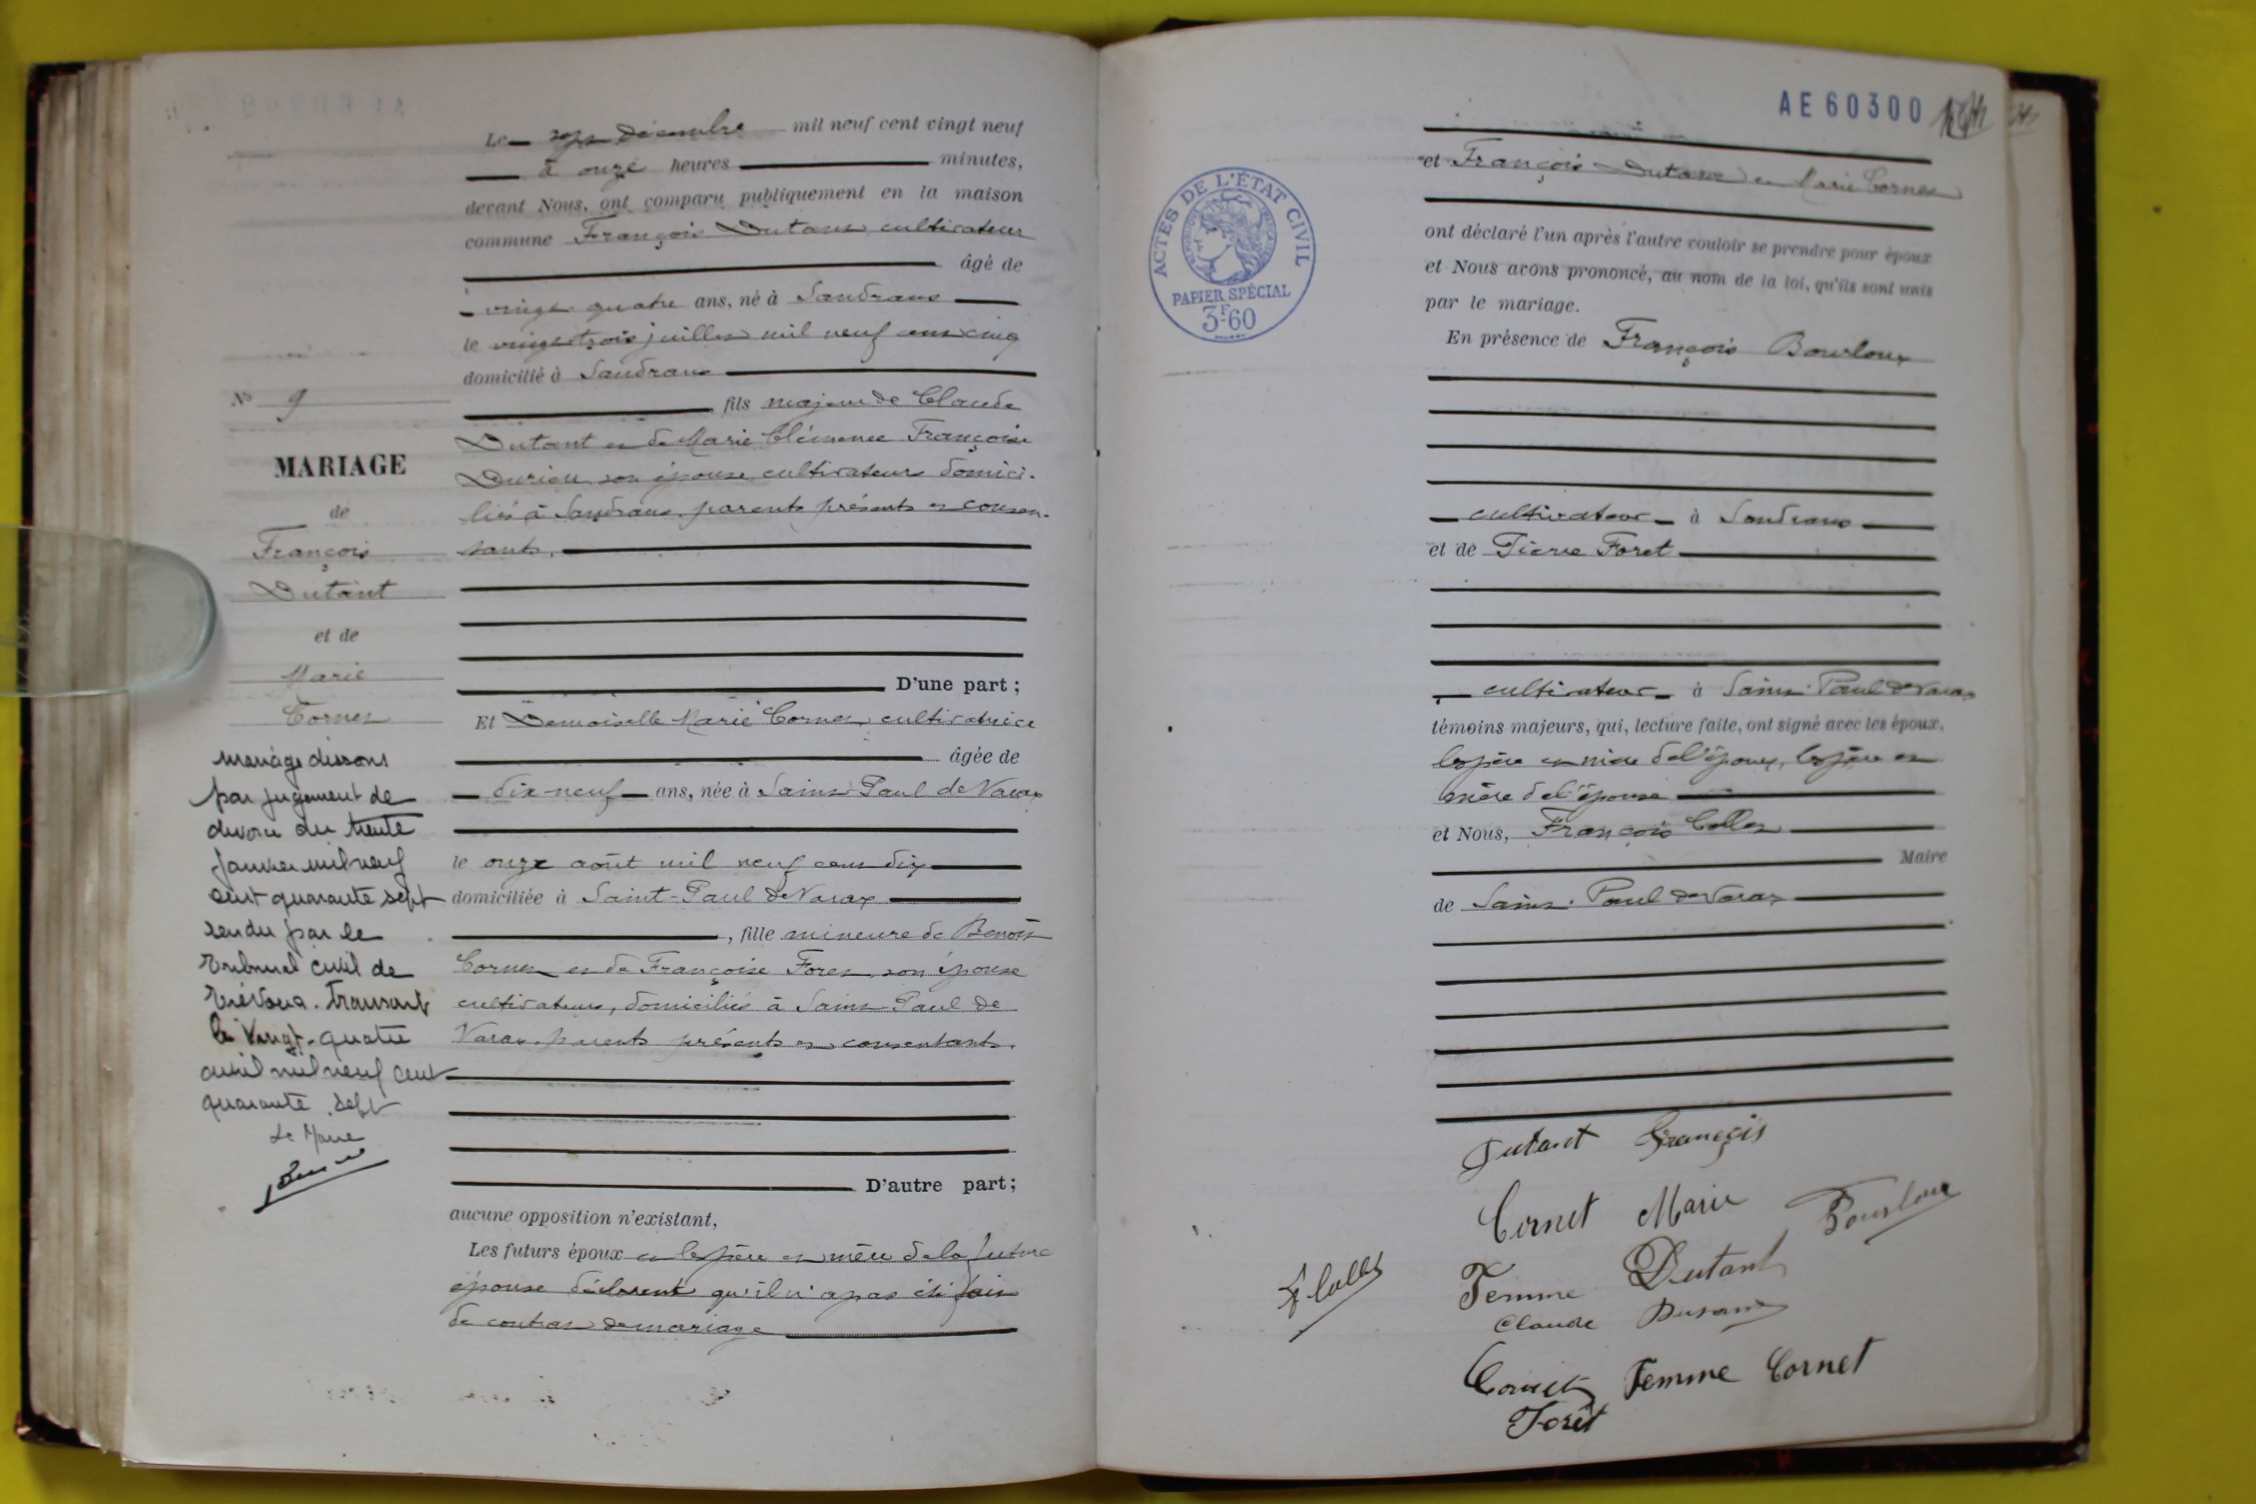 Le décembre mil neuf cent vingt neuf
à onze heures minutes,
devant Nous, ont comparu publiquement en la maison
commune François Dutant cultivateur
âgé de
vingt quatre ans, né à Sandrans
le vingt trois juillet mil neuf cent cinq
domicilié à Sandrans
fils majeur de Claude
Dutant et de Marie Clémence Françoise
Durieu son épouse cultivateurs domici-
liés à Sandrans, parents présents et consen-
tants.
D'une part ;
Et Demoiselle Marie Cornet cultivatrice
âgée de
dix-neuf ans, née à Saint Paul de Varax
le onze août mil neuf cent dix
domiciliée à Saint-Paul de Varax
, fille mineure de Benoît
Cornet et de Françoise Foret son épouse
cultivateurs, domiciliés à Saint Paul de
Varax, parents présents et consentants.
D'autre part ;
aucune opposition n'existant,
Les futurs époux et les père et mère de la future
épouse déclarent qu'il n'a pas été fait
de contrat de mariage
No 9
MARIAGE
de
François
Dutant
et de
Marie
Cornet
mariage dissous
par jugement de
divorce du trente
janvier mil neuf
cent quarante sept
rendu par le
Tribunal civil de
Trévoux. Transcrit
le vingt-quatre
avril mil neuf cent
quarante sept
Le Maire
AE 60300
ACTES DE L'ÉTAT CIVIL
PAPIER SPÉCIAL
3F60
et François Dutant et Marie Cornet
ont déclaré l'un après l'autre vouloir se prendre pour époux
et Nous avons prononcé, au nom de la loi, qu'ils sont unis
par le mariage.
En présence de François Bourloux
cultivateur à Sandrans
et de Pierre Foret
cultivateur à Saint Paul de Varax
témoins majeurs, qui, lecture faite, ont signé avec les époux,
les père et mère de l'époux, les père et
mère de l'épouse
et Nous, François Collet
Maire
de Saint-Paul de Varax
Dutant François
Cornet Marie
Bourloux
Femme Dutant
F Collet
Claude Dutant
Cornet Femme Cornet
Forêt